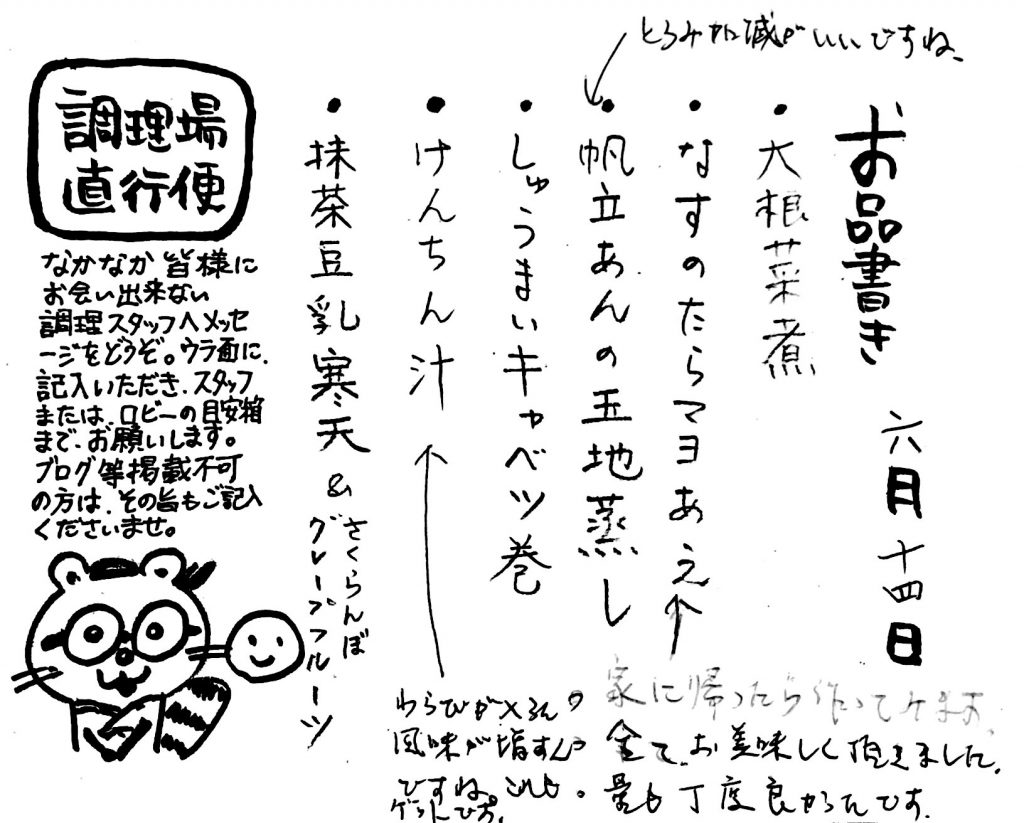 とろみ加減がいいですね、
お品書き 六月十四日
・大根菜煮
・なすのたらマヨあえ
・帆立あんの玉地蒸し
・しゅうまいキャベツ巻
・けんちん汁
・抹茶豆乳寒天 & さくらんぼ
グレープフルーツ
調理場
直行便
なかなか皆様に
お会い出来ない
調理スタッフへメッセ
ージをどうぞ。ウラ面に、
記入いただき、スタッフ
または、ロビーの目安箱
まで、お願いします。
ブログ等掲載不可
の方は、その旨もご記入
くださいませ。
家に帰ったら作ってみます
全て、お美味しく頂きました。
量も丁度良かったです。
わらびが入ると
風味が増すん
ですね。これも。
ゲットです。